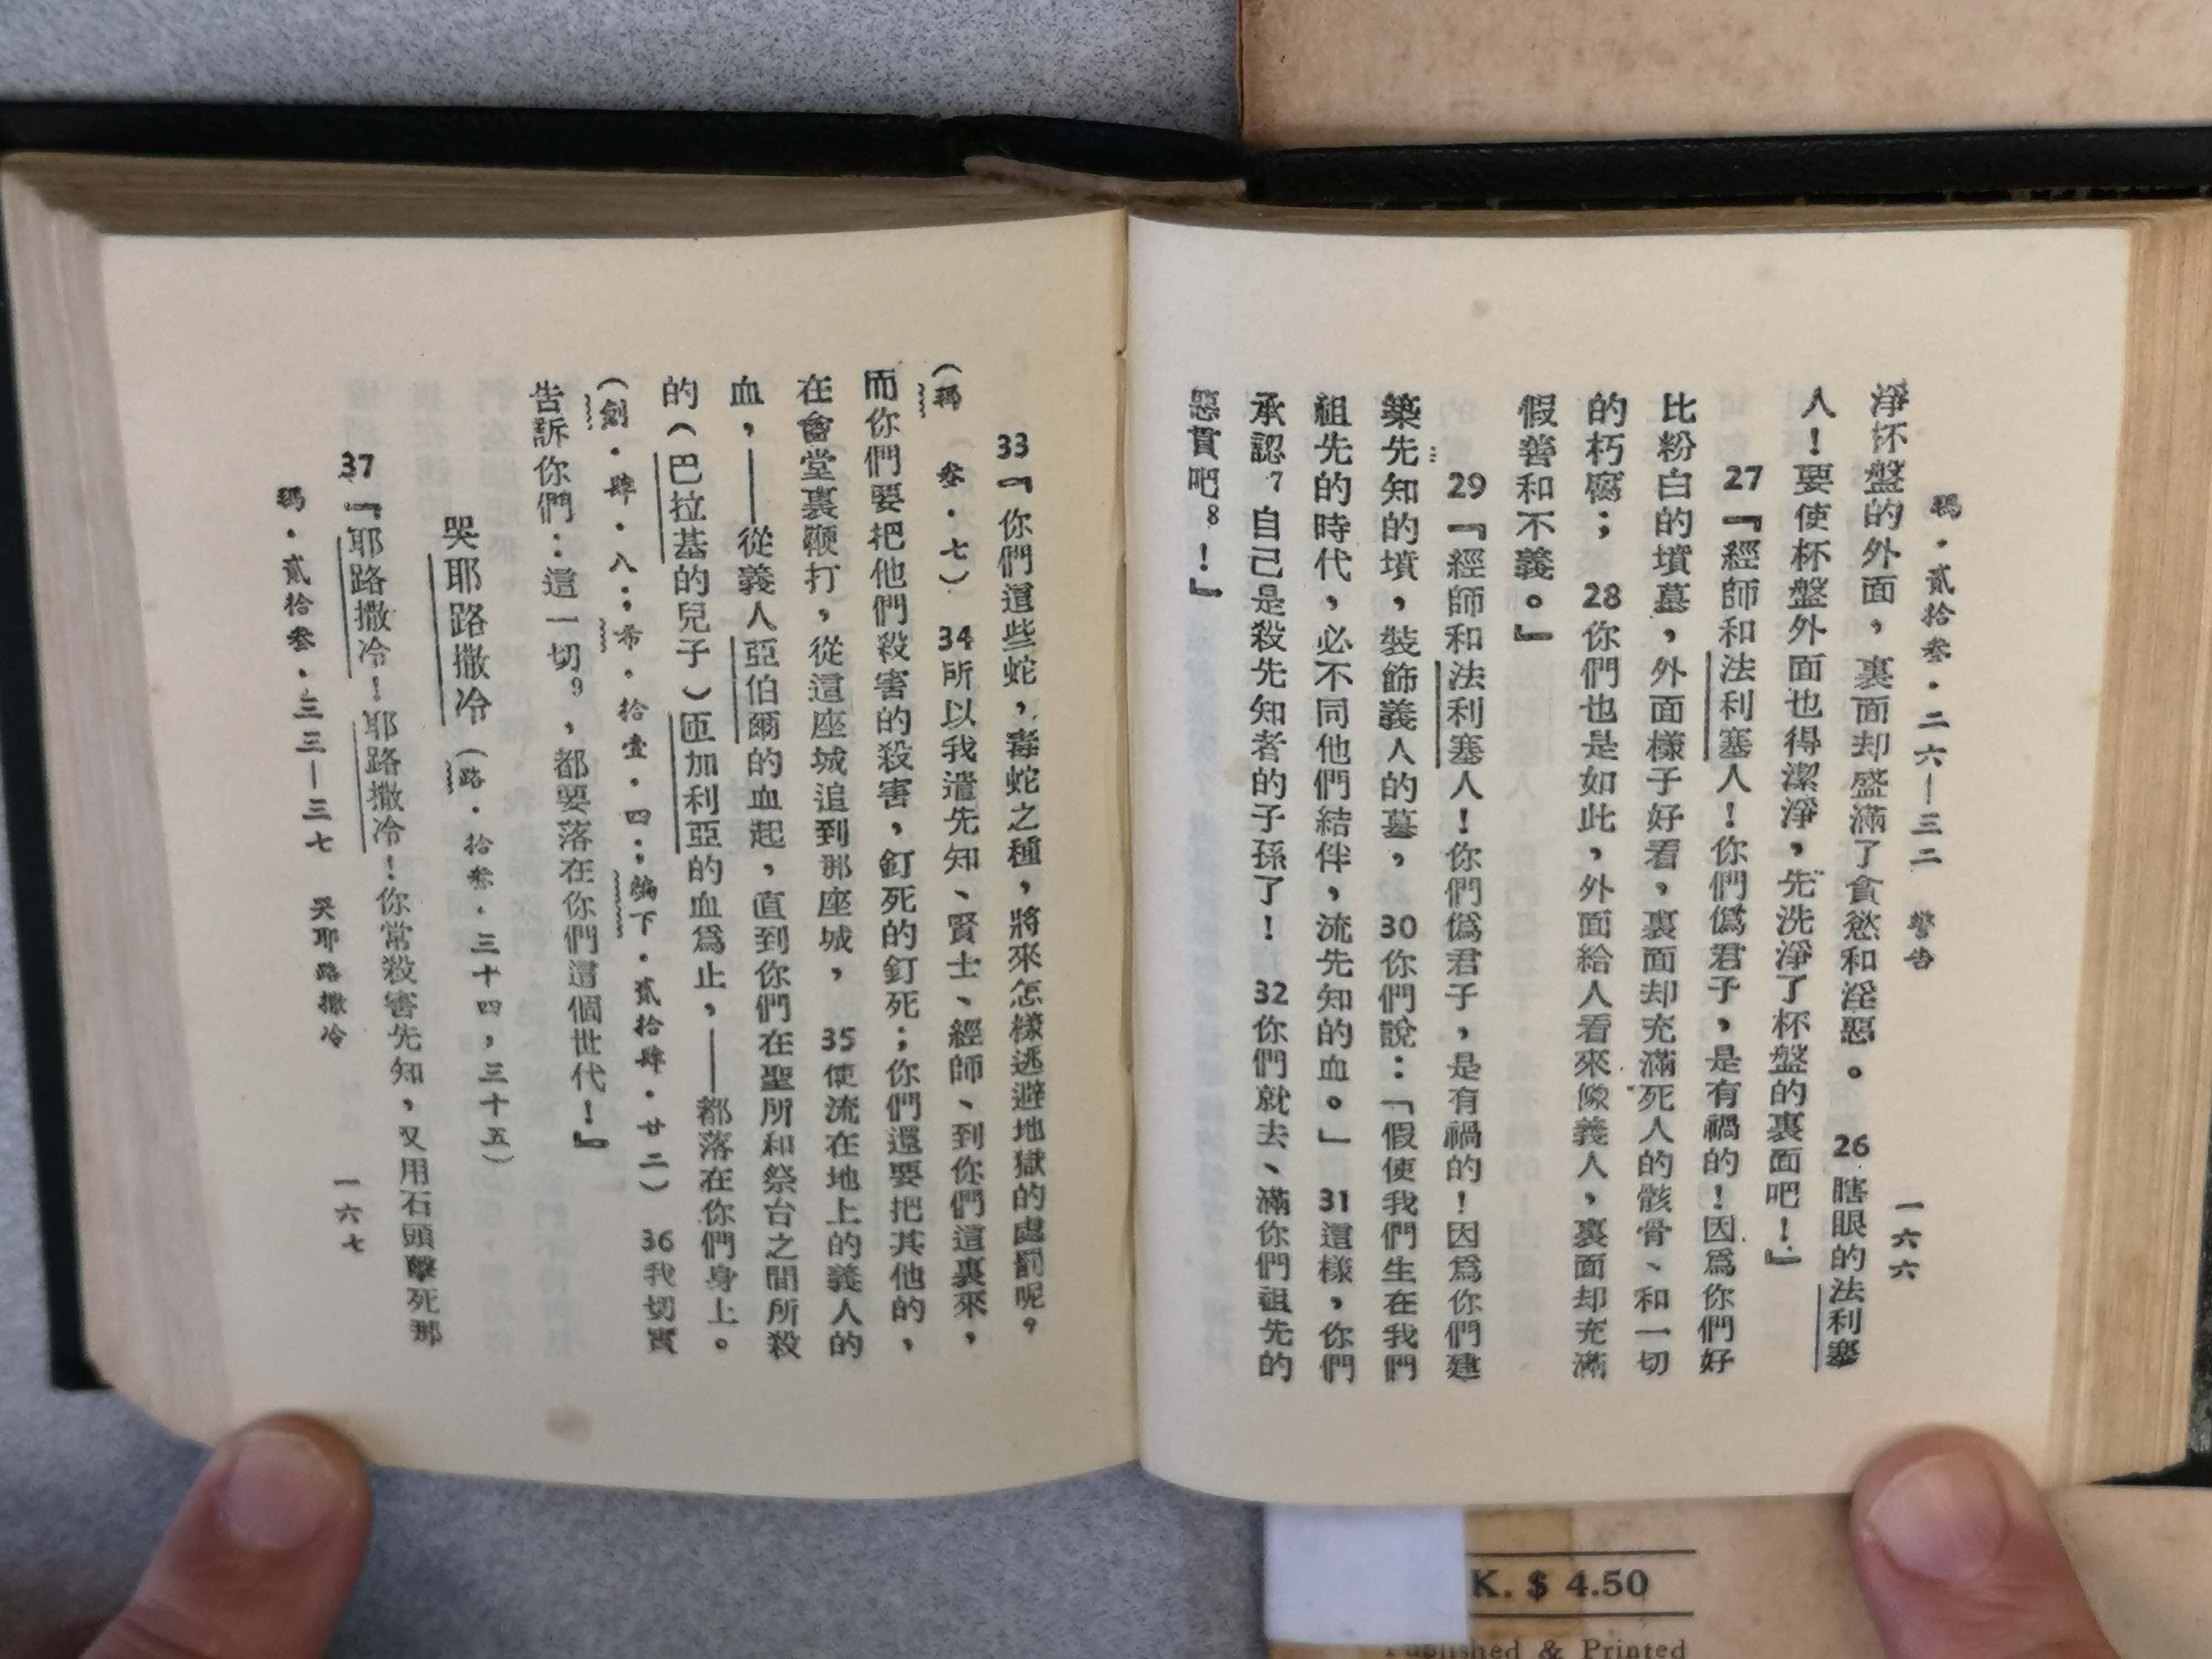 瑪．貳拾叁．二六—三二　警告　一六六
淨杯盤的外面，裏面却盛滿了貪慾和淫惡。 26 瞎眼的法利塞
人！要使杯盤外面也得潔淨，先洗淨了杯盤的裏面吧！』
27『經師和法利塞人！你們僞君子，是有禍的！因爲你們好
比粉白的墳墓，外面樣子好看，裏面却充滿死人的骸骨、和一切
的朽腐； 28你們也是如此，外面給人看來像義人，裏面却充滿
假善和不義。』
29『經師和法利塞人！你們僞君子，是有禍的！因爲你們建
築先知的墳，裝飾義人的墓， 30你們說：「假使我們生在我們
祖先的時代，必不同他們結伴，流先知的血。」 31這樣，你們
承認7自己是殺先知者的子孫了！ 32你們就去、滿你們祖先的
惡貫吧8！』
33『你們這些蛇，毒蛇之種，將來怎樣逃避地獄的處罰呢？
（瑪　叁．七） 34所以我遣先知、賢士、經師、到你們這裏來，
而你們要把他們殺害的殺害，釘死的釘死；你們還要把其他的，
在會堂裏鞭打，從這座城追到那座城， 35使流在地上的義人的
血，——從義人亞伯爾的血起，直到你們在聖所和祭台之間所殺
的（巴拉基的兒子）匝加利亞的血爲止，——都落在你們身上。
（創．肆．八；希．拾壹．四；編下．貳拾肆．廿二） 36我切實
告訴你們：這一切9，都要落在你們這個世代！』
哭耶路撒冷（路．拾叁．三十四，三十五）
37『耶路撒冷！耶路撒冷！你常殺害先知，又用石頭擊死那
瑪．貳拾叁．三三—三七　哭耶路撒冷　一六七
K. $ 4.50
Published & Printed